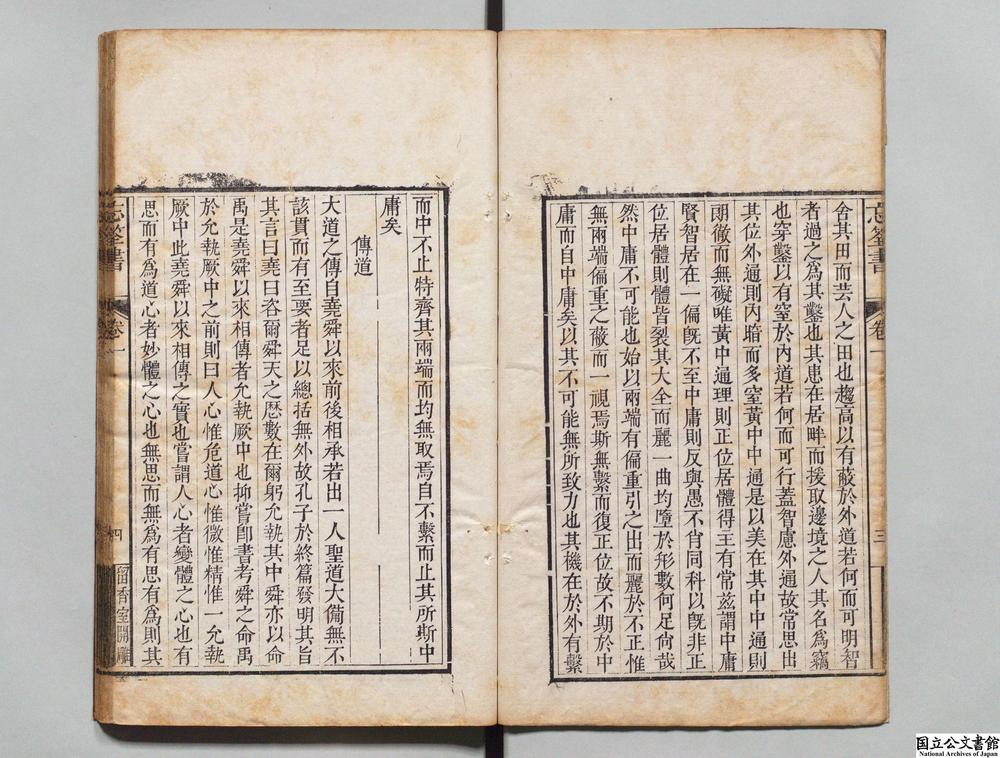 忘筌書
卷一
三
舍其田而芸人之田也趨高以有蔽於外道若何而可明智
者過之為其鑿也其患在居畔而援取邊境之人其名為竊
也穿鑿以有窒於內道若何而可行蓋智慮外通故當思出
其位外通則內暗而多窒黃中中通是以美在其中中通則
朗徹而無礙唯黃中通理則正位居體得主有常茲謂中庸
賢智居在一偏旣不至中庸則反與愚不肖同科以旣非正
位居體則體皆裂其大全而麗一曲均墮於形數何足尙哉
然中庸不可能也始以兩端有偏重引之出而麗於不正惟
無兩端偏重之蔽而一視焉斯無繫而復正位故不期於中
庸而自中庸矣以其不可能無所致力也其機在於外有繫
而中不止特齊其兩端而均無取焉自不繫而止其所斯中
庸矣
傳道
大道之傳自堯舜以來前後相承若出一人聖道大備無不
該貫而有至要者足以總括無外故孔子於終篇發明其旨
其言曰堯曰咨爾舜天之曆數在爾躬允執其中舜亦以命
禹是堯舜以來相傳者允執厥中也抑嘗卽書考舜之命禹
於允執厥中之前則曰人心惟危道心惟微惟精惟一允執
厥中此堯舜以來相傳之實也嘗謂人心者變體之心也有
思而有為道心者妙體之心也無思而無為有思有為則其
忘筌書
卷一
四
留香室開雕
国立公文書館
National Archives of Japan